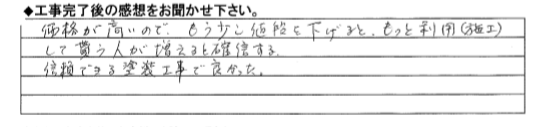 ◆工事完了後の感想をお聞かせ下さい。
価格が高いので、もう少し値段を下げると、もっと利用(施工)
して貰う人が増えると確信する。
信頼できる塗装工事で良かった。